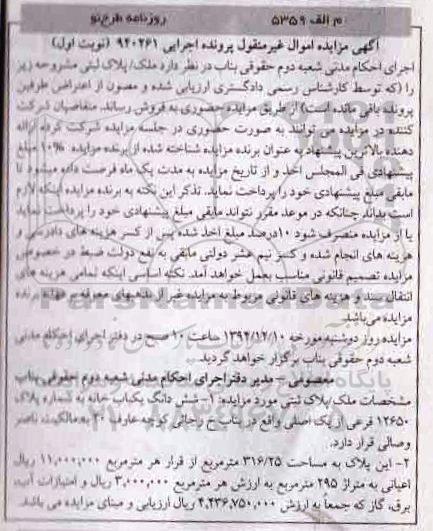 م الف ۵۳۵۹
روزنامه طرح‌نو
آگهی مزایده اموال غیرمنقول پرونده اجرایی ۹۴۰۲۶۱ (نوبت اول)
اجرای احکام مدنی شعبه دوم حقوقی بناب در نظر دارد ملک/پلاک ثبتی مشروحه زیر
را (که توسط کارشناس رسمی دادگستری ارزیابی شده و مصون از اعتراض طرفین
پرونده باقی مانده است) از طریق مزایده حضوری به فروش رساند. متقاضیان شرکت
کننده در مزایده می توانند به صورت حضوری در جلسه مزایده شرکت کرده ارائه
دهنده بالاترین پیشنهاد به عنوان برنده مزایده شناخته شده از برنده مزایده ۱۰% مبلغ
پیشنهادی فی المجلس اخذ و از تاریخ مزایده به مدت یک ماه فرصت داده میشود تا
مابقی مبلغ پیشنهادی خود را پرداخت نماید. تذکر این نکته به برنده مزایده اینکه لازم
است بداند چنانکه در موعد مقرر نتواند مابقی مبلغ پیشنهادی خود را پرداخت نماید
یا از مزایده منصرف شود ۱۰درصد مبلغ اخذ شده پس از کسر هزینه های دادرسی و
هزینه های انجام شده و کسر نیم عشر دولتی مابقی به نفع دولت ضبط در خصوص
مزایده تصمیم قانونی مناسب بعمل خواهد آمد. نکته اساسی اینکه تمامی هزینه های
انتقال سند و هزینه های قانونی مربوط به مزایده غیر از بدهیهای معوقه بر عهده برنده
مزایده می‌باشد.
مزایده روز دوشنبه مورخه ۱۳۹۴/۱۲/۱۰ ساعت ۱۰ صبح در دفتر اجرای احکام مدنی
شعبه دوم حقوقی بناب برگزار خواهد گردید.
معصومی - مدیر دفتر اجرای احکام مدنی شعبه دوم حقوقی بناب
مشخصات ملک/پلاک ثبتی مورد مزایده: ۱- شش دانگ یکباب خانه به شماره پلاک
۱۲۶۵۰ فرعی از یک اصلی واقع در بناب خ رجائی کوچه عارف ۲۰ به مالکیت ناصر
وصالی قرار دارد.
۲- این پلاک به مساحت ۳۱۶/۲۵ مترمربع از قرار هر مترمربع ۱۱,۰۰۰,۰۰۰ ریال
اعیانی به متراژ ۲۹۵ مترمربع به ارزش هر مترمربع ۳,۰۰۰,۰۰۰ ریال و امتیازات آب،
برق، گاز که جمعاً به ارزش ۴,۴۳۶,۷۵۰,۰۰۰ ریال ارزیابی و مبنای مزایده می باشد.